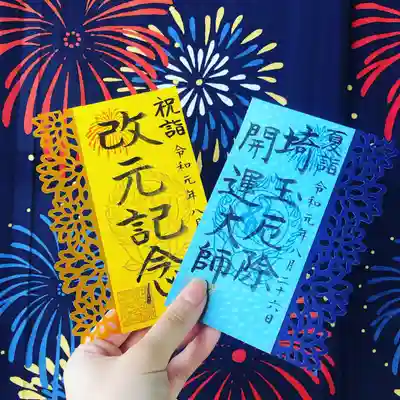 祝詣
令和元年八
改元記念
夏詣
令和元年八月二十六日
埼玉厄除
開運大師